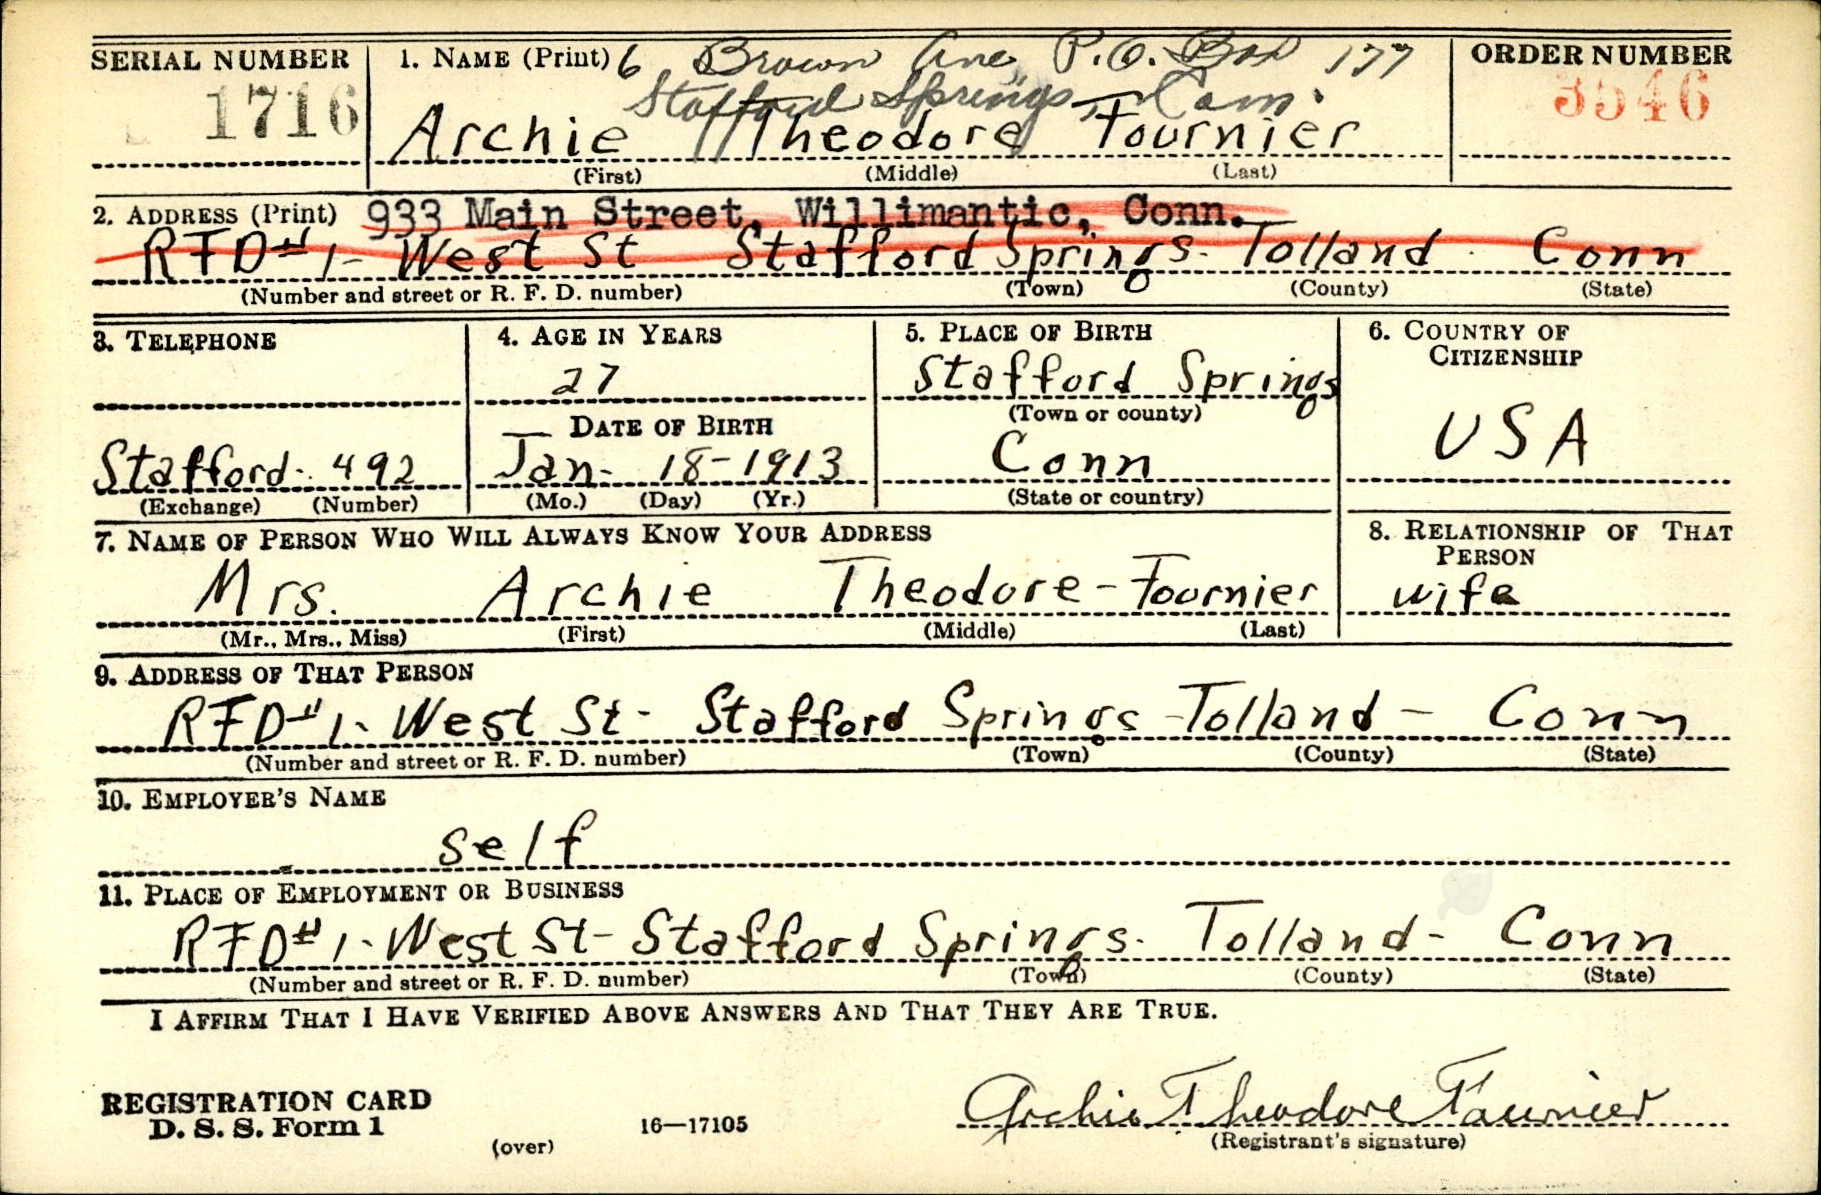 SERIAL NUMBER
1716
1. NAME (Print) 6 Brown Ave, P.O. Box 177
Stafford Springs, Conn.
Archie Theodore Fournier
(First) (Middle) (Last)
ORDER NUMBER
3546
2. ADDRESS (Print) 933 Main Street, Willimantic, Conn.
RFD#1- West St Stafford Springs- Tolland - Conn
(Number and street or R. F. D. number) (Town) (County) (State)
3. TELEPHONE
Stafford- 492
(Exchange) (Number)
4. AGE IN YEARS
27
DATE OF BIRTH
Jan- 18-1913
(Mo.) (Day) (Yr.)
5. PLACE OF BIRTH
Stafford Springs
(Town or county)
Conn
(State or country)
6. COUNTRY OF
CITIZENSHIP
USA
7. NAME OF PERSON WHO WILL ALWAYS KNOW YOUR ADDRESS
Mrs. Archie Theodore-Fournier
(Mr., Mrs., Miss) (First) (Middle) (Last)
8. RELATIONSHIP OF THAT
PERSON
wife
9. ADDRESS OF THAT PERSON
RFD#1- West St- Stafford Springs-Tolland- Conn
(Number and street or R. F. D. number) (Town) (County) (State)
10. EMPLOYER'S NAME
self
11. PLACE OF EMPLOYMENT OR BUSINESS
RFD#1- West St- Stafford Springs- Tolland- Conn
(Number and street or R. F. D. number) (Town) (County) (State)
I AFFIRM THAT I HAVE VERIFIED ABOVE ANSWERS AND THAT THEY ARE TRUE.
REGISTRATION CARD
D. S. S. Form 1
(over)
16—17105
Archie Theodore Fournier
(Registrant's signature)